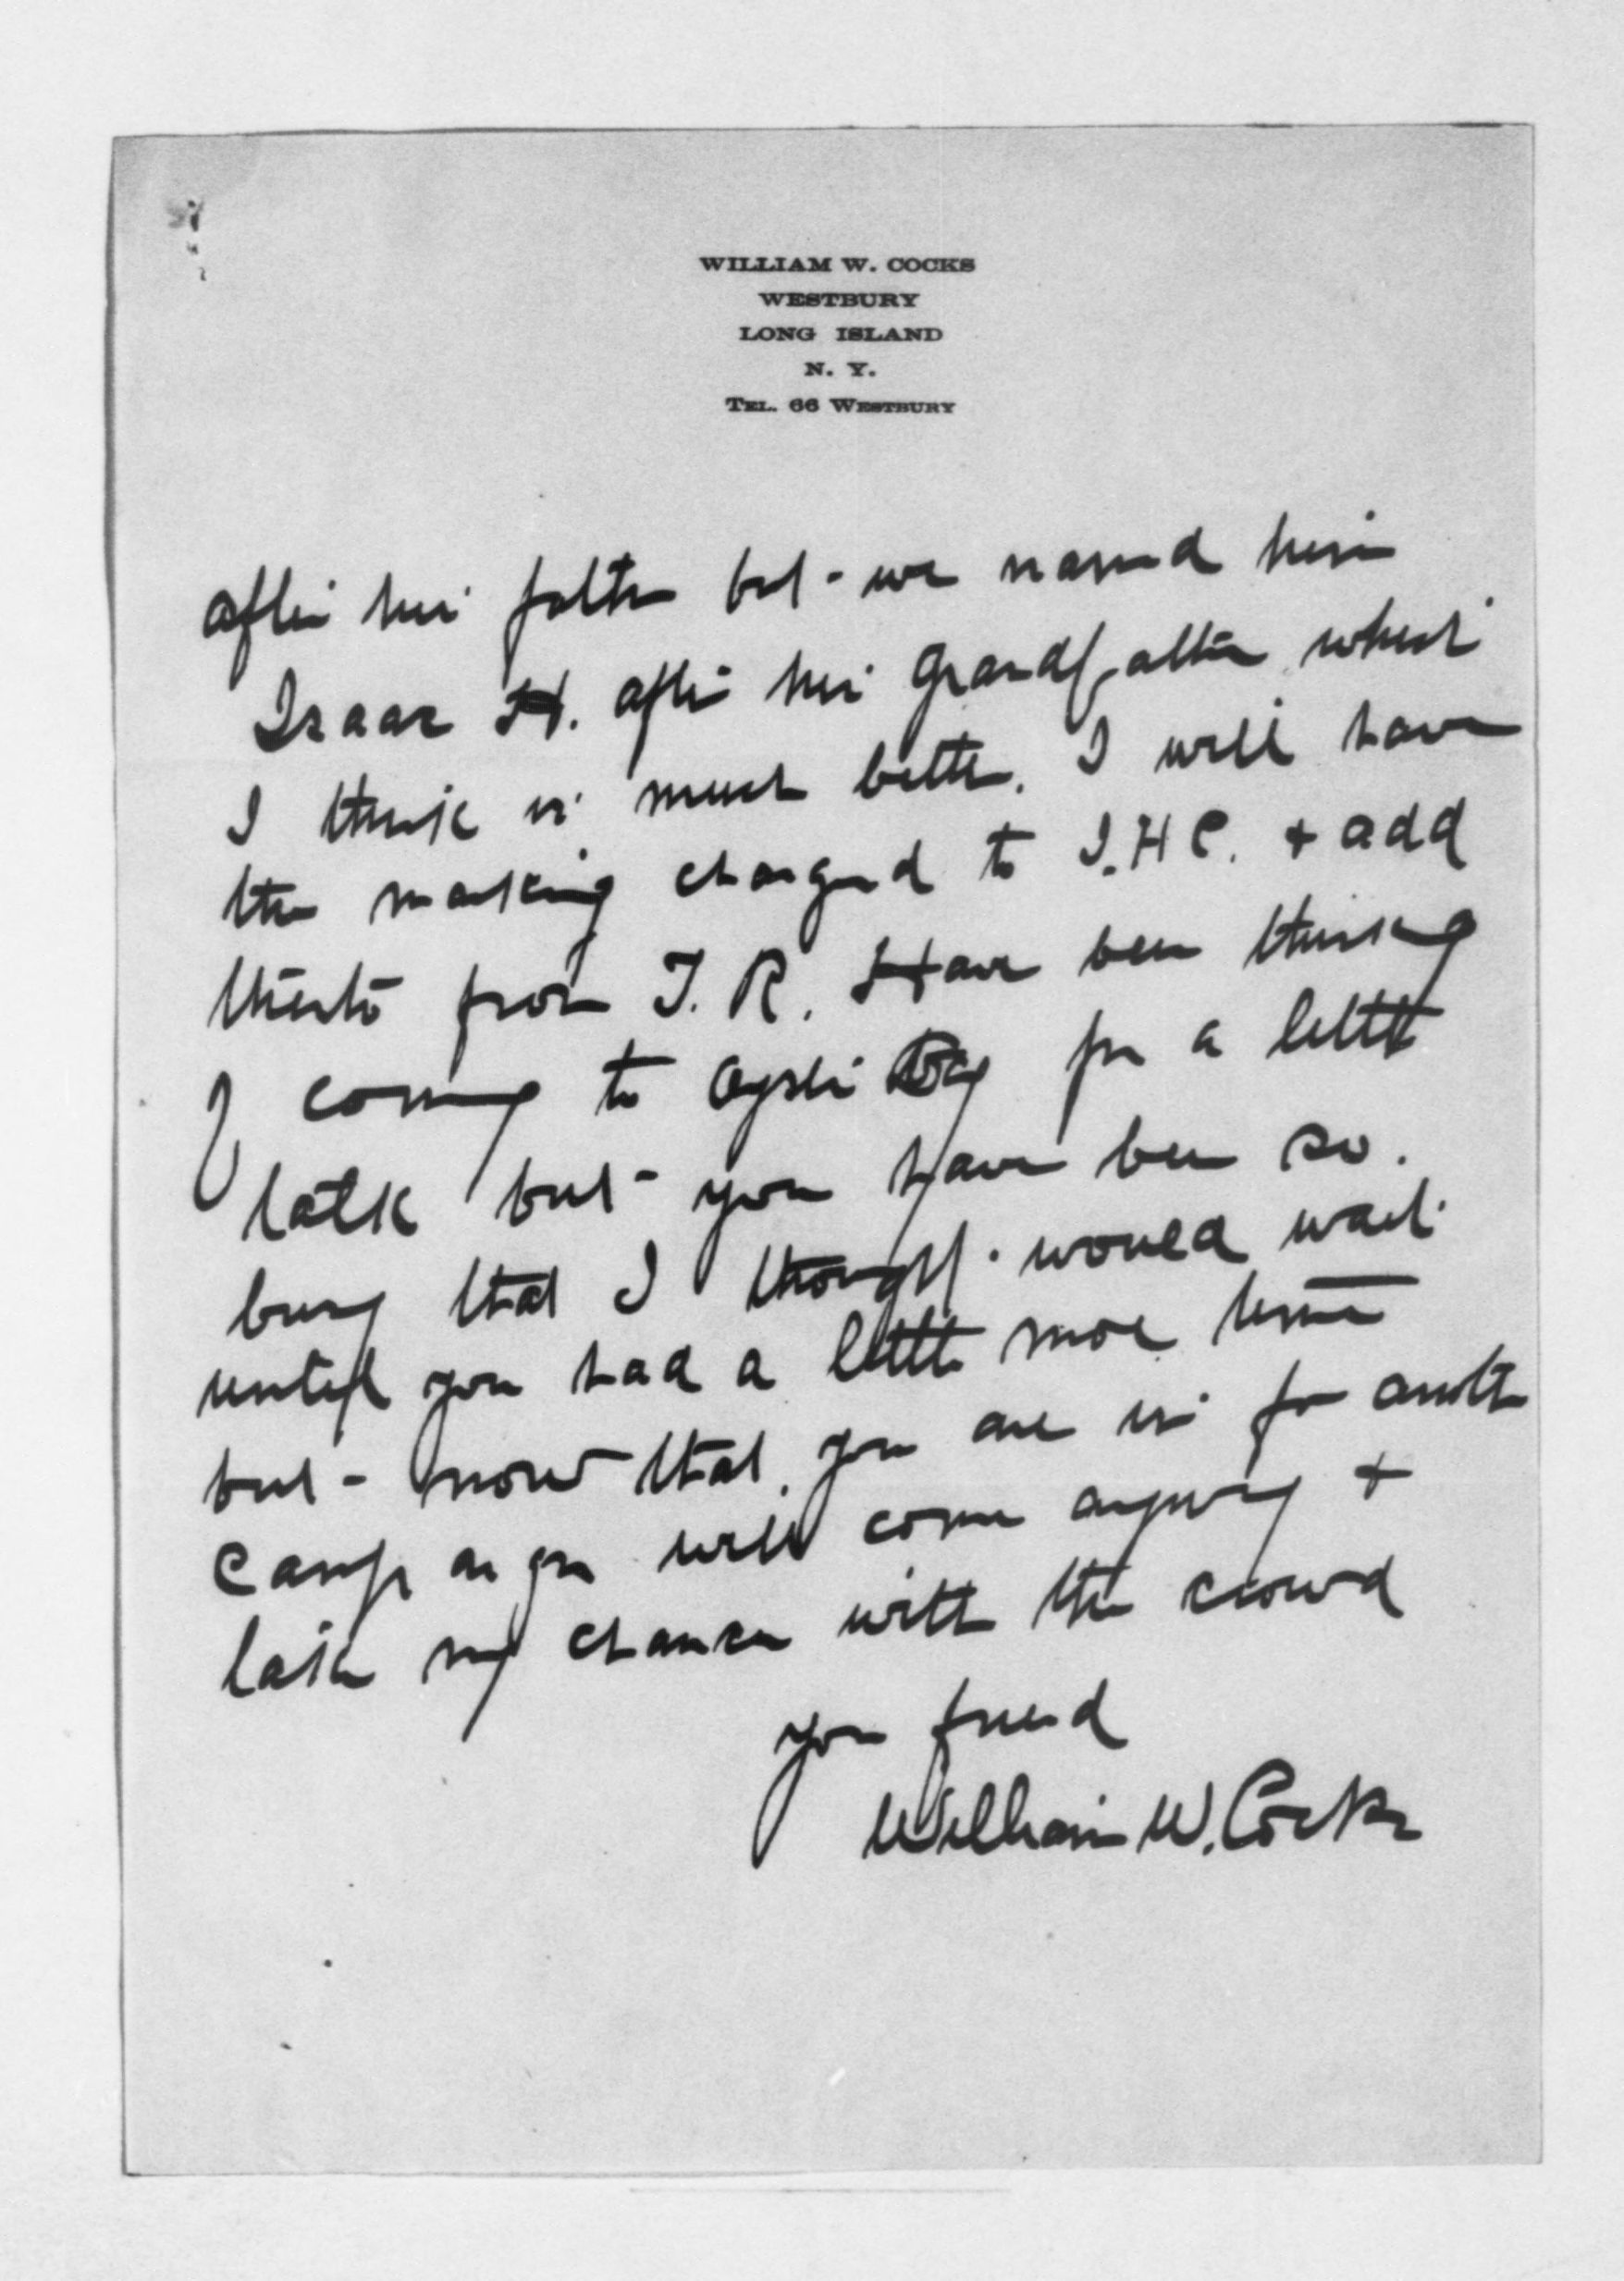 WILLIAM W. COCKS
WESTBURY
LONG ISLAND
N. Y.
TEL. 66 WESTBURY
after his father but - we named him
Isaac H. after his Grandfather which
I think is much better. I will have
the marking changed to I.H C. + add
thereto from T. R. Have been thinking
of coming to Oyster Bay for a little
talk but - you have been so
busy that I thought would wait
until you had a little more time
but - now that you are in for another
Campaign will come anyway +
take my chances with the crowd
your friend
William W. Cocks